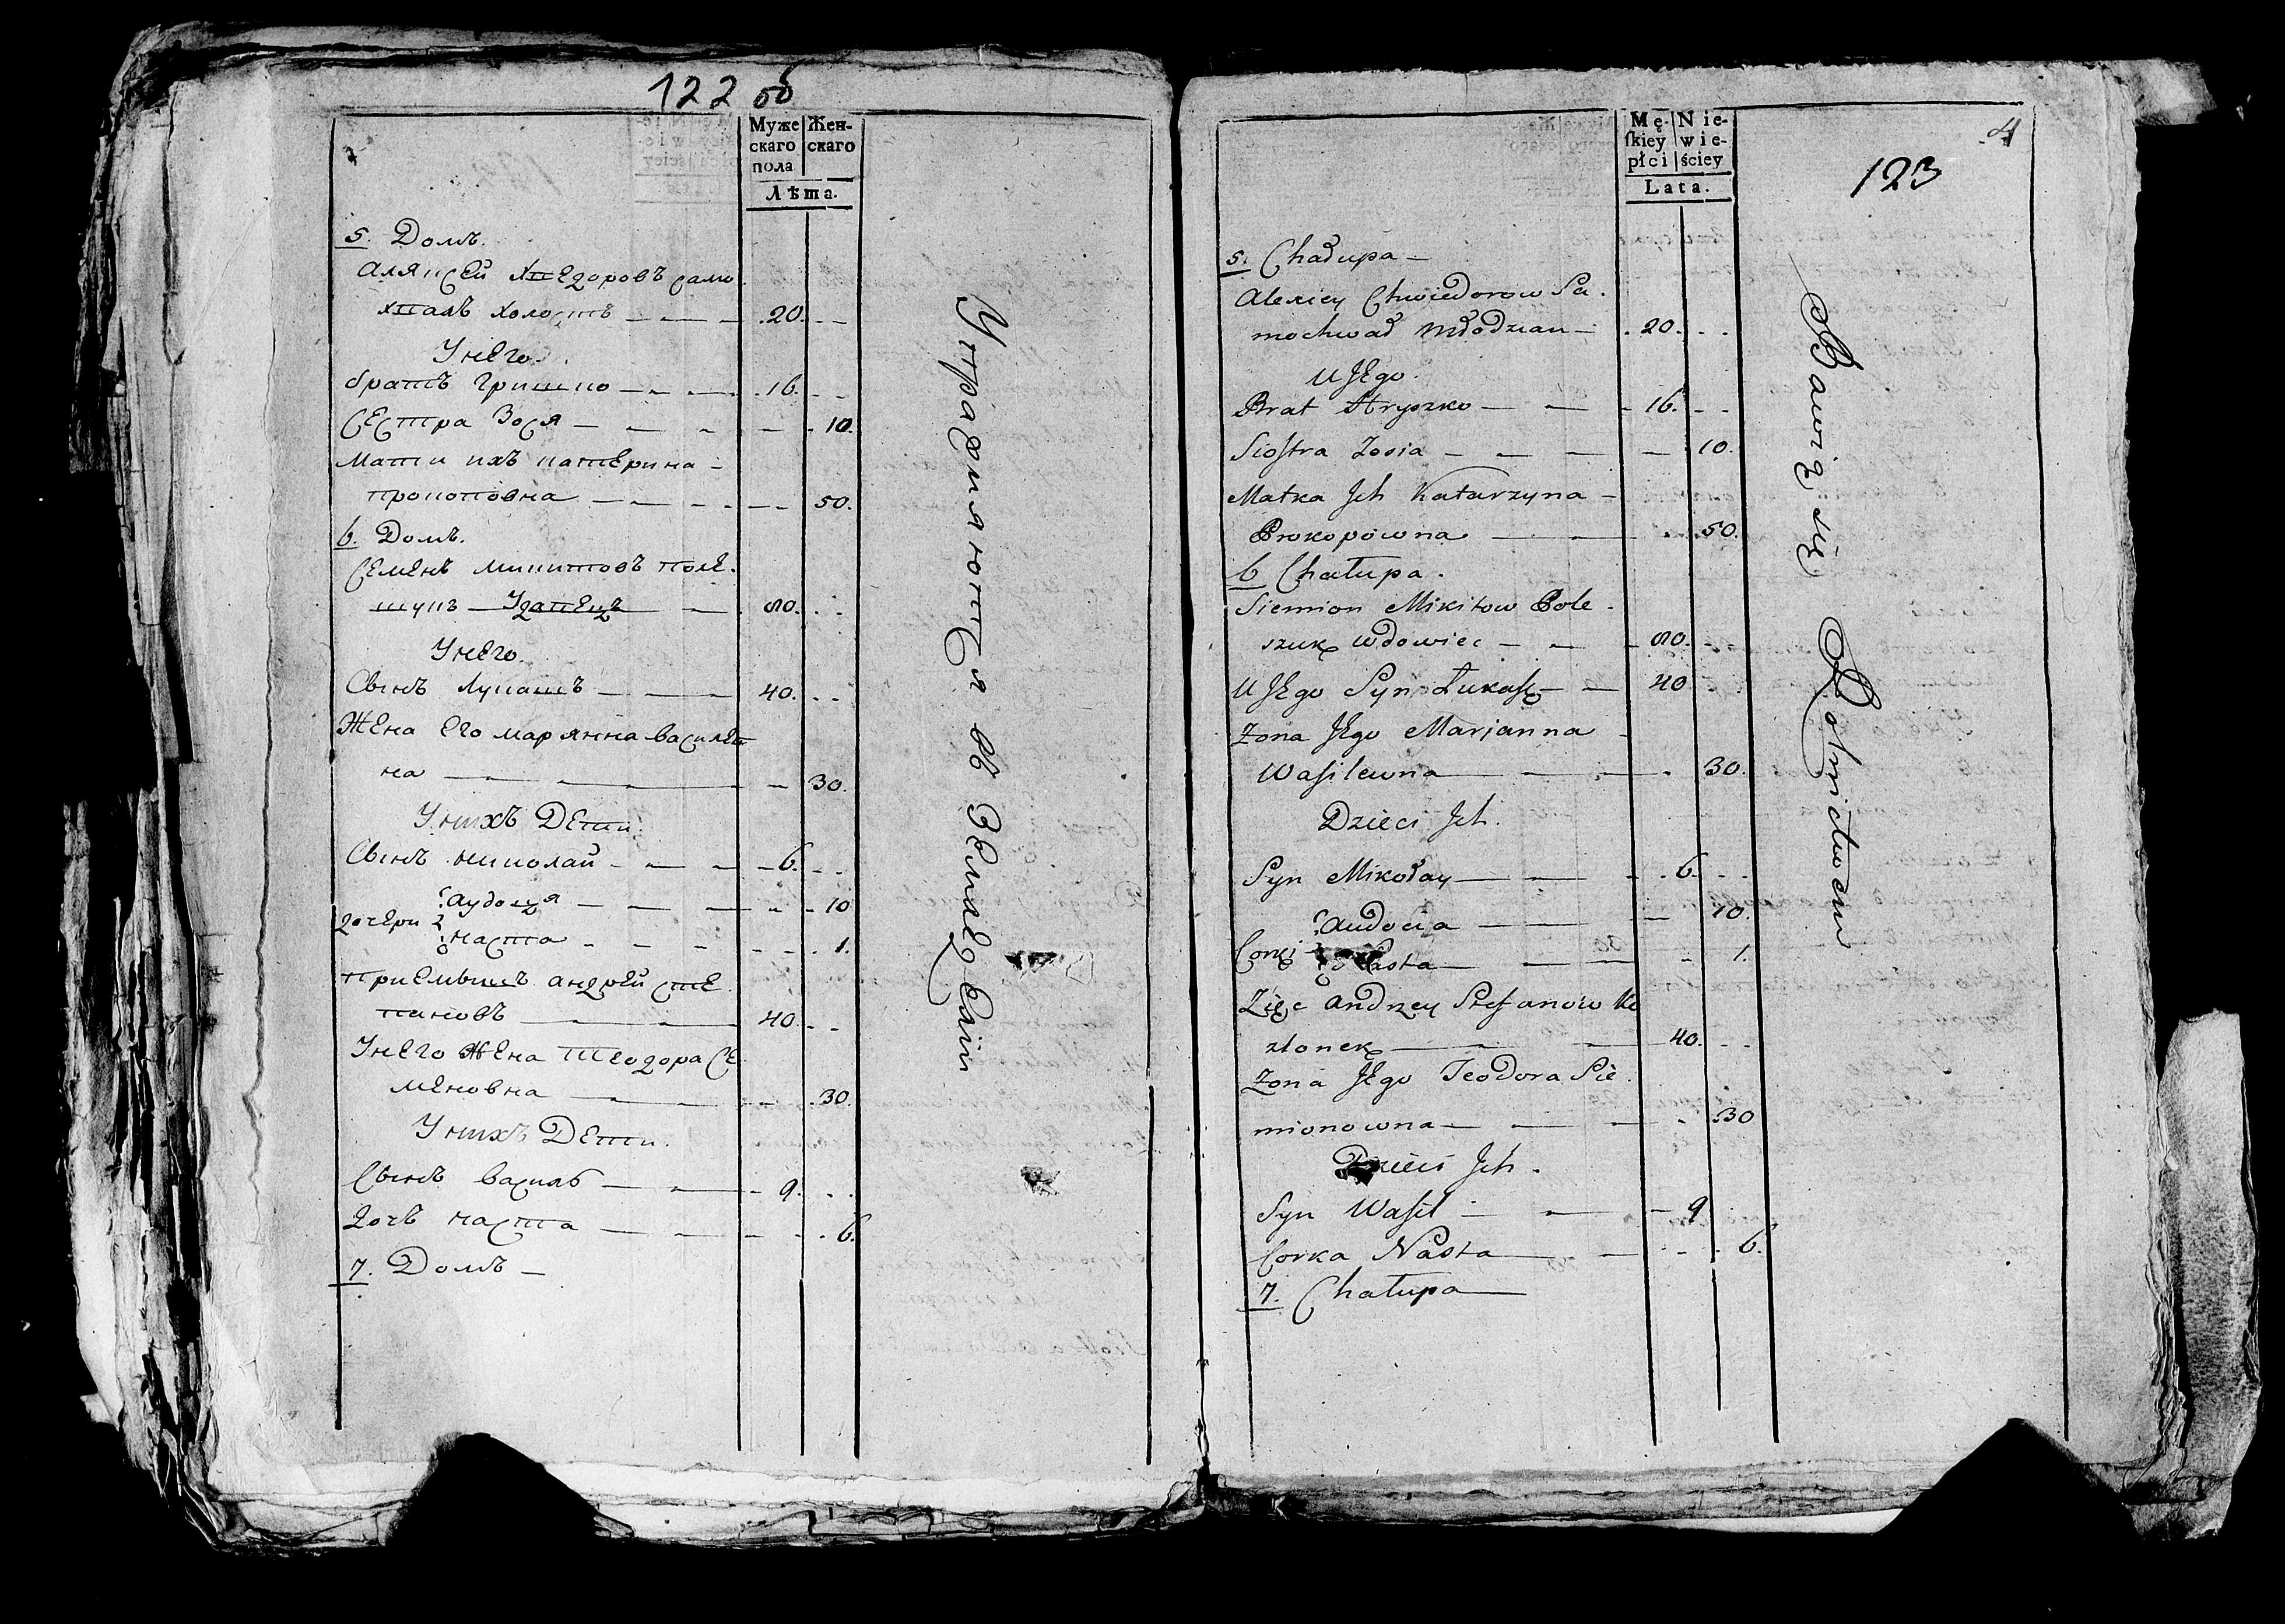 122 об
Муже
скаго
пола
Жен-
скаго
Лѣта.
5. Домъ.
Алякс​ей Хтедоровъ само
хталъ холостъ 20.
У него.
братъ гришко 16.
Сестра Зося 10.
Мати ихъ катерина
прокоповна 50.
6. Домъ.
Семенъ микитовъ поле-
шукъ 80.
У него.
Сынъ Лукашъ 40.
Жена Его марянна василев
на 30.
У нихъ Дети.
Сынъ николай 6.
дочери
аудоця 10
наста 1.
приемышъ андрей сте
пановъ 40.
У него Жена теодора се
меновна 30.
У нихъ Дети.
Сынъ василь 9.
дочъ наста 6.
7. Домъ
Упражняются въ Земледелии
4
123
Mę-
skiey
płci
Nie-
wie-
ściey
Lata.
5. Chałupa
Alexiey Chwiedorow Sa-
mochwał Młodzian 20.
U Jego.
Brat Hryszko 16.
Siostra Zosia 10.
Matka Jch Katarzyna
Prokopowna 50.
6 Chałupa.
Siemion Mikitow Pole-
szuk wdowiec 80.
U Jego Syn Łukasz 40
Zona Jego Marjanna
Wasilewna 30.
Dzieci Jch.
Syn Mikołay 6.
Corki
Audocia 10.
Nasta 1.
Zięc Andrzey Stefanow Ko
złonek 40.
Zona Jego Teodora Sie
mionowna 30
Dzieci Jch.
Syn Wasil 9
Corka Nasta 6.
7. Chałupa
Bawią się Rolnictwem